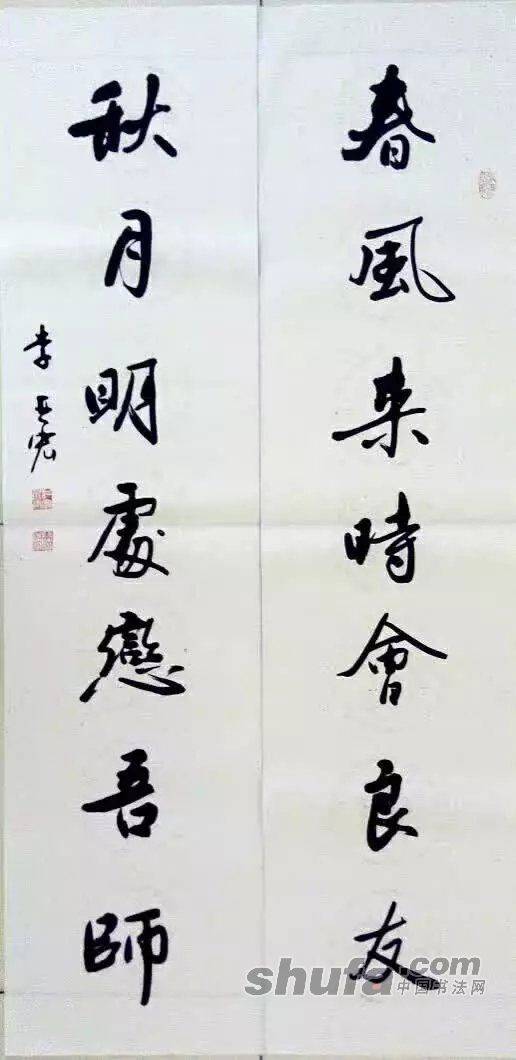 春風来時會良友
秋月明處戀吾師
李亞宏
shufa.com
中国书法网